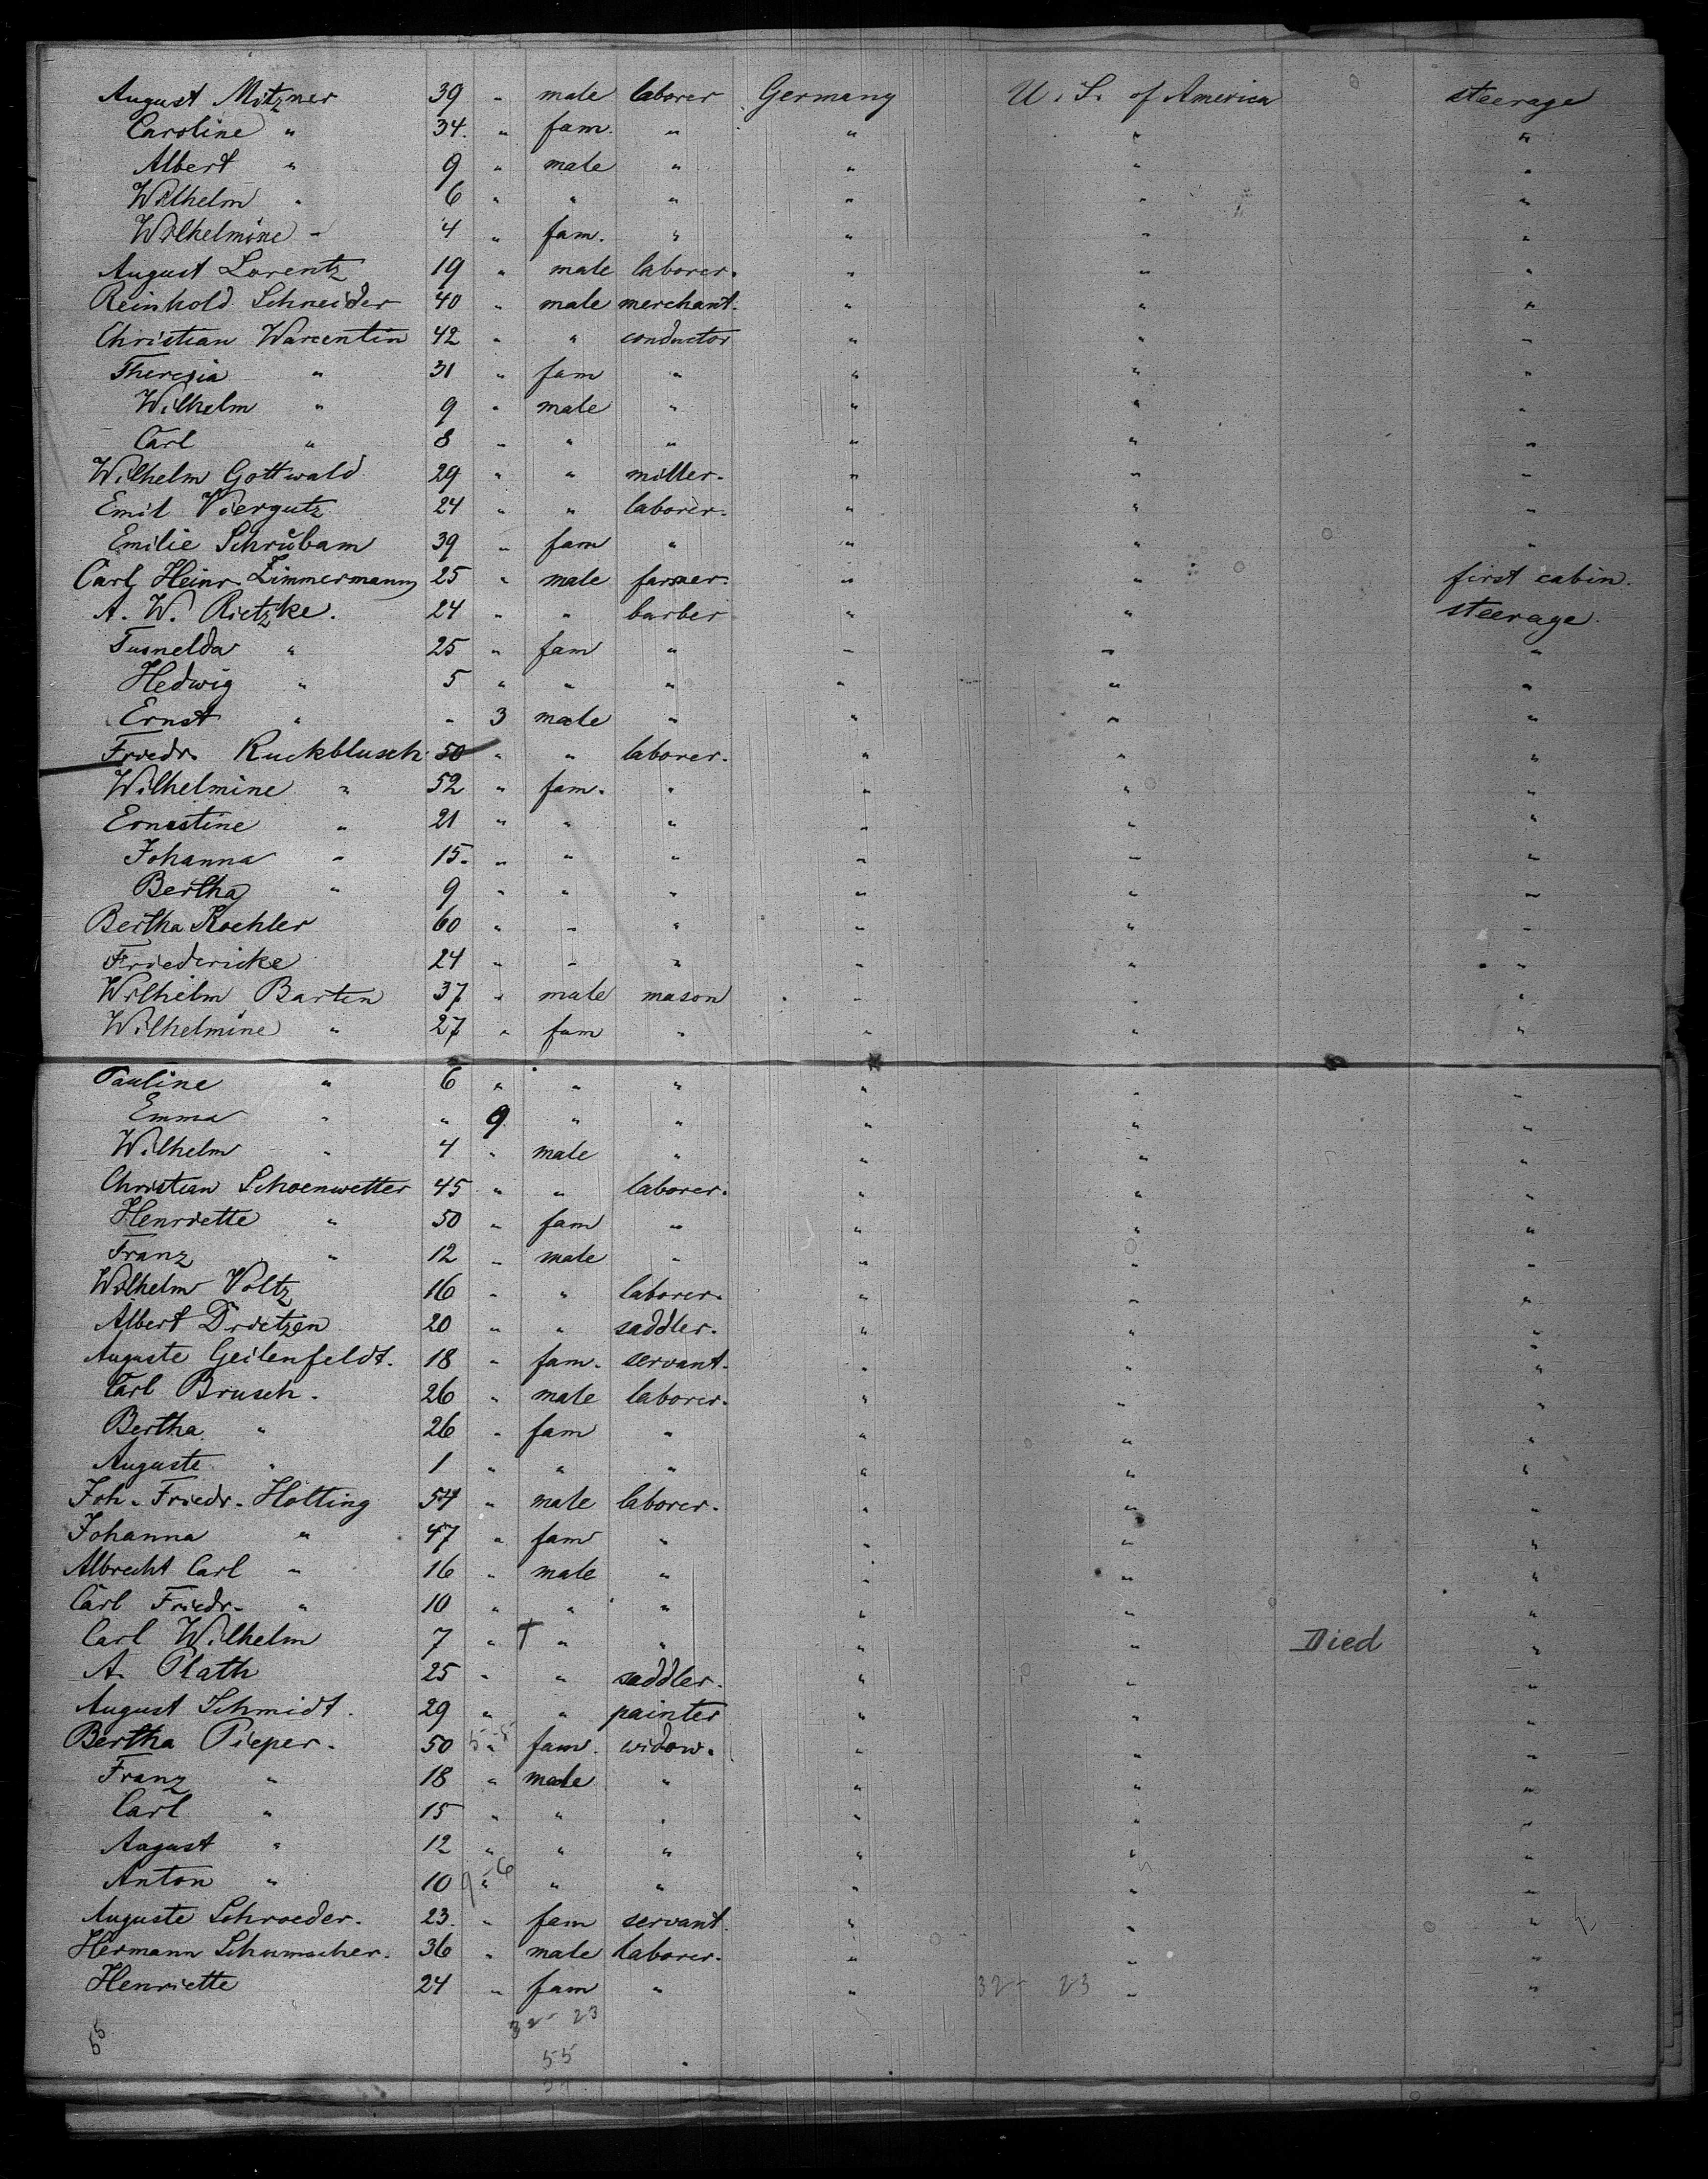 August Mitzner 39 " male laborer Germany U. S. of America steerage
Caroline " 34. " fam. " " " "
Albert " 9 " male " " " "
Wilhelm " 6 " " " " " "
Wilhelmine " 4 " fam. " " " "
August Lorentz 19 " male laborer. " " "
Reinhold Schneider 40 " male merchant. " " "
Christian Warcentin 42 " " conductor " " "
Theresia " 31 " fam " " " "
Wilhelm " 9 " male " " " "
Carl " 8 " " " " " "
Wilhelm Gottwald 29 " " miller. " " "
Emil Viergutz 24 " " laborer. " " "
Emilie Schrŭbam 39 " fam " " " "
Carl Heinr. Zimmermann 25 " male farmer. " " first cabin.
A. W. Rietzke. 24 " " barber " " steerage.
Tusnelda " 25 " fam " " " "
Hedwig " 5 " " " " " "
Ernst " " 3 male " " " "
Friedr. Ruckblusch 50 " " laborer. " " "
Wilhelmine " 52 " fam. " " " "
Ernestine " 21 " " " " " "
Johanna " 15. " " " " " "
Bertha " 9 " " " " " "
Bertha Koehler 60 " " " " " "
Friedericke 24 " " " " " "
Wilhelm Barten 37 " male mason " " "
Wilhelmine " 27 " fam " " " "
Pauline " 6 " " " " " "
Emma " " 9 " " " " "
Wilhelm " 4 " male " " " "
Christian Schoenwetter 45 " " laborer. " " "
Henriette " 50 " fam " " " "
Franz " 12 " male " " " "
Wilhelm Voltz 16 " " laborer. " " "
Albert Drietzen 20 " " saddler. " " "
Auguste Geilenfeldt. 18 " fam. servant. " " "
Carl Brusch. 26 " male laborer. " " "
Bertha " 26 " fam " " " "
Auguste " 1 " " " " " "
Joh. Friedr. Holting 54 " male laborer. " " "
Johanna " 47 " fam " " " "
Albrecht Carl " 16 " male " " " "
Carl Friedr. " 10 " " " " " "
Carl Wilhelm 7 " † " " " " Died "
A. Plath 25 " " saddler. " " "
August Schmidt. 29 " " painter " " "
Bertha Pieper. 50 " fam. widow. " " "
Franz " 18 " male " " " "
Carl " 15 " " " " " "
August " 12 " " " " " "
Anton " 10 " " " " " "
Auguste Schroeder. 23. " fam servant. " " "
Hermann Schumacher. 36 " male laborer. " " "
Henriette 24 " fam " " 32 - 23 " "
32 - 23
55
55